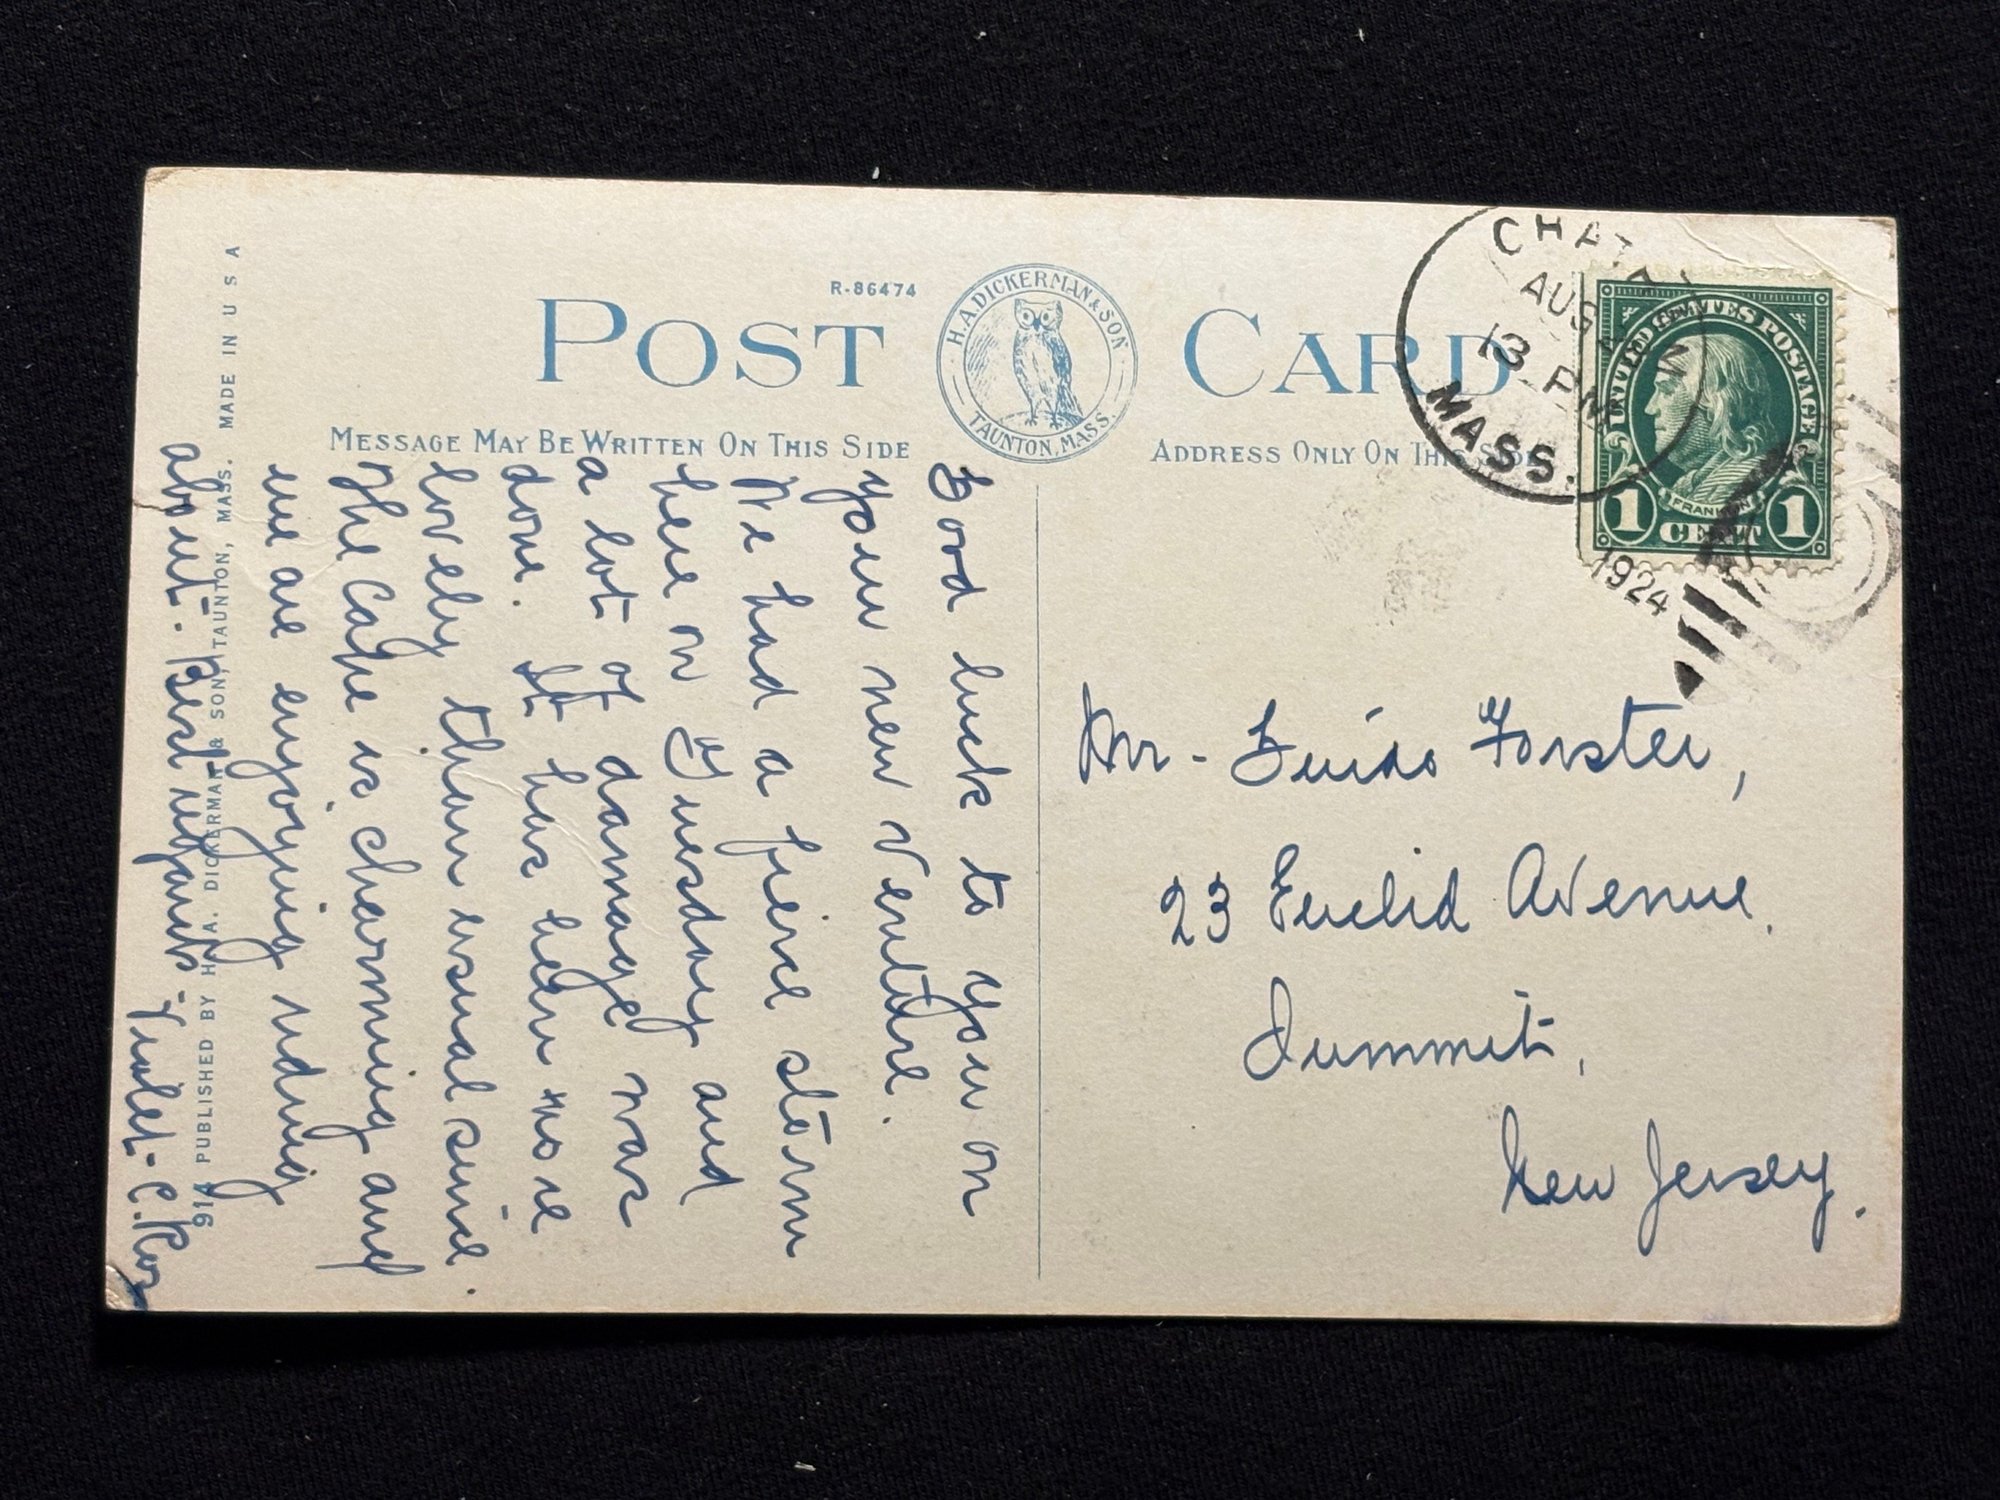 POST CARD
R-86474
H.A. DICKERMAN & SON
TAUNTON, MASS.
MESSAGE MAY BE WRITTEN ON THIS SIDE
ADDRESS ONLY ON THIS SIDE
CHATHAM
AUG
12 PM
MASS.
1924
UNITED STATES POSTAGE
FRANKLIN
1 CENT 1
Good luck to you on
your new venture.
We had a fierce storm
here on Tuesday and
a lot of damage was
done. It has been more
lovely than usual since.
The Cape is charming and
we are enjoying riding
about. Best regards - Violet - C. Ros
Mr - Guido Forster,
23 Euclid Avenue.
Summit,
New Jersey.
91A PUBLISHED BY H. A. DICKERMAN & SON, TAUNTON, MASS. MADE IN U S A